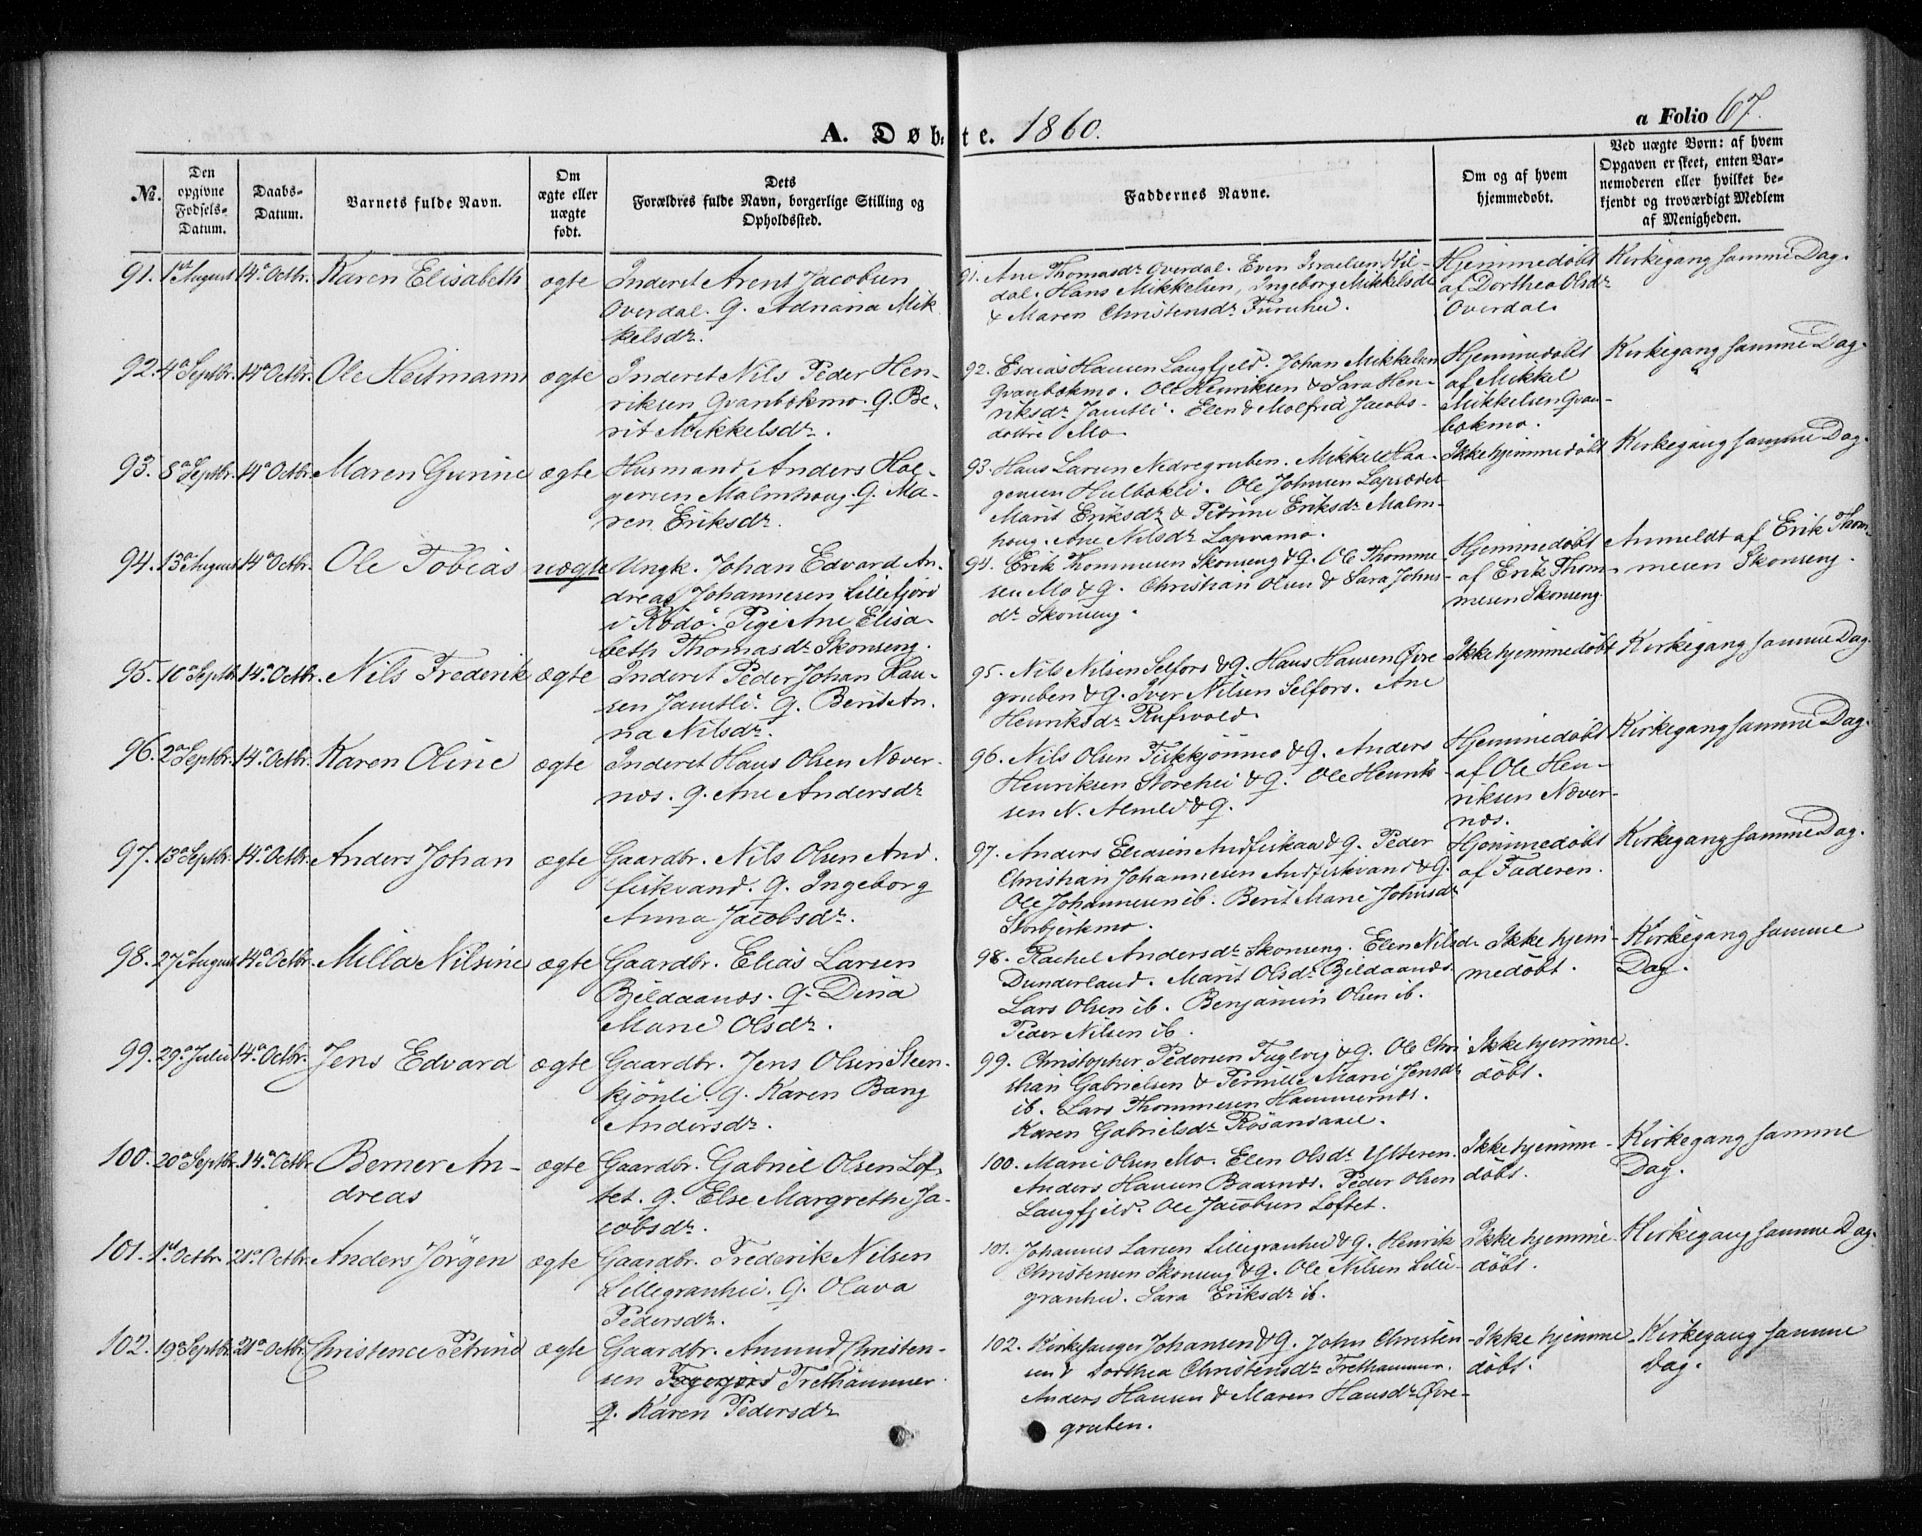 A. Døbte. 1860.
a Folio 67.
№.
Den opgivne Fødsels-Datum.
Daabs-Datum.
Barnets fulde Navn.
Om ægte eller uægte født.
Dets Forældres fulde Navn, borgerlige Stilling og Opholdssted.
Faddernes Navne.
Om og af hvem hjemmedøbt.
Ved uægte Børn: af hvem Opgaven er skeet, enten Barnemoderen eller hvilket bekjendt og troværdigt Medlem af Menigheden.
91. 1ste August 14de Octbr. Karen Elisabeth ægte
Inderst Arent Jacobsen
Overdal. G. Adriana Mik-
kelsdr.
91. Ane Thomasdr Overdal. Even Israelsen Hil-
dal. Hans Mikkelsen, Ingeborg Mikkelsdr
& Maren Christensdr Furuhei.
Hjemmedøbt
af Dorthea Olsdr
Overdal.
Kirkegang samme Dag.
92. 4de Septbr. 14de Octbr. Ole Heitmann ægte
Inderst Nils Peder Hen-
riksen Granbokmo. G. Be-
rit Mikkelsdr.
92. Esaias Hansen Langfjeld. Johan Mikkelsen
Granbokmo. Ole Henriksen & Sara Hen-
riksdr Jamtli. Elen & Molfrid Jacobs-
dottre Mo.
Hjemmedøbt
af Mikkel
Mikkelsen Gran-
bokmo.
Kirkegang samme Dag.
93. 8de Septbr. 14de Octbr. Maren Gurine ægte
Husmand Anders Hol-
gersen Malmhoug. G. Ma-
ren Eriksdr.
93. Hans Larsen Nedregruben. Mikkel Haa-
gensen Hulbokli. Ole Johnsen
Marit Eriksdr & Petrine Eriksdr Malm-
houg. Ane Nilsdr Lapvamo.
Ikke hjemmedøbt
Kirkegang samme Dag.
94. 13de August 14de Octbr. Ole Tobias uægte
Ungk. Johan Edvard An-
dreas Johannesen Lillefjord
i Rødø. Pige Ane Elisa-
beth Thomasdr Skonseng.
94. Erik Thommesen Skonseng & G. Ole Thomme-
sen Mo & G. Christian Olsen & Sara Johns-
dr Skonseng.
Hjemmedøbt
af Erik Thom-
mesen Skonseng.
Anmeldt af Erik Thom-
mesen Skonseng.
95. 10de Septbr. 14de Octbr. Nils Frederik ægte
Inderst Peder Johan Han-
sen Jamtli. G. Berit An-
na Nilsdr.
95. Nils Nilsen Selfors & G. Hans Hansen Øvre
gruben & G. Iver Nilsen Selfors. Ane
Henriksdr Rufsvold.
Ikke hjemmedøbt
Kirkegang samme Dag.
96. 2de Septbr. 14de Octbr. Karen Oline ægte
Inderst Hans Olsen Næver-
nes. G. Ane Andersdr
96. Nils Olsen Fiskkjønmo & G. Anders
Henriksen Storehei & G. Ole Henrik-
sen N. Almli & G.
Hjemmedøbt
af Ole Hen-
riksen Næver-
nes.
Kirkegang samme Dag.
97. 13de Septbr. 14de Octbr. Anders Johan ægte
Gaardbr. Nils Olsen And-
fiskvand. G. Ingeborg
Anna Jacobsdr.
97. Anders Eliasen Andfiskaa & G. Peder
Christian Johannesen Andfiskvand & G.
Ole Johannesen ib. Berit Marie Johnsdr
Storbjerkmo.
Hjemmedøbt
af Faderen.
Kirkegang samme Dag.
98. 27de August 14de Octbr. Milla Nilsine ægte
Gaardbr. Elias Larsen
Bjeldaanes. G. Dina
Marie Olsdr.
98. Rachel Andersdr Skonseng. Elen Nilsdr
Dunderland. Marit Olsdr Bjeldaanes
Lars Olsen ib. Benjamin Olsen ib.
Peder Nilsen ib.
Ikke hjem-
medøbt.
Kirkegang samme
Dag.
99. 29de Juli 14de Octbr. Jens Edvard ægte
Gaardbr. Jens Olsen Steen-
kjønli. G. Karen Bang
Andersdr.
99. Christopher Pedersen Fuglvig & G. Ole Chri-
stian Gabrielsen & Pernille Marie Jensdr
ib. Lars Thommesen Hammernes.
Karen Gabrielsdr Røsandaael.
Ikke hjemme-
døbt.
100. 20de Septbr. 14de Octbr. Berner An-
dreas ægte
Gaardbr. Gabriel Olsen Lof-
tet. G. Else Margrethe Ja-
cobsdr.
100. Marie Olsen Mo. Elen Olsdr Ytteren.
Anders Hansen Baasnes. Peder Olsen
Langfjeld. Ole Jacobsen Loftet.
Ikke hjemme-
døbt.
Kirkegang samme
Dag.
101. 1ste Octbr. 21de Octbr. Anders Jørgen ægte
Gaardbr. Frederik Nilsen
Lillegranhei. G. Olava
Pedersdr.
101. Johannes Larsen Lillegranhei & G. Henrik
Christensen Skonseng & G. Ole Nilsen Lille-
granhei. Sara Eriksdr ib.
Ikke hjemme-
døbt.
Kirkegang samme Dag.
102. 19de Septbr. 21de Octbr. Christence Petrine ægte
Gaardbr. Amund Christen-
sen Trethammer.
G. Karen Pedersdr
102. Kirkesanger Johansen & G. John Christen-
sen & Dorthea Christensdr Trethammer.
Anders Hansen & Maren Hansdr Øvre-
gruben.
Ikke hjemme-
døbt.
Kirkegang samme
Dag.